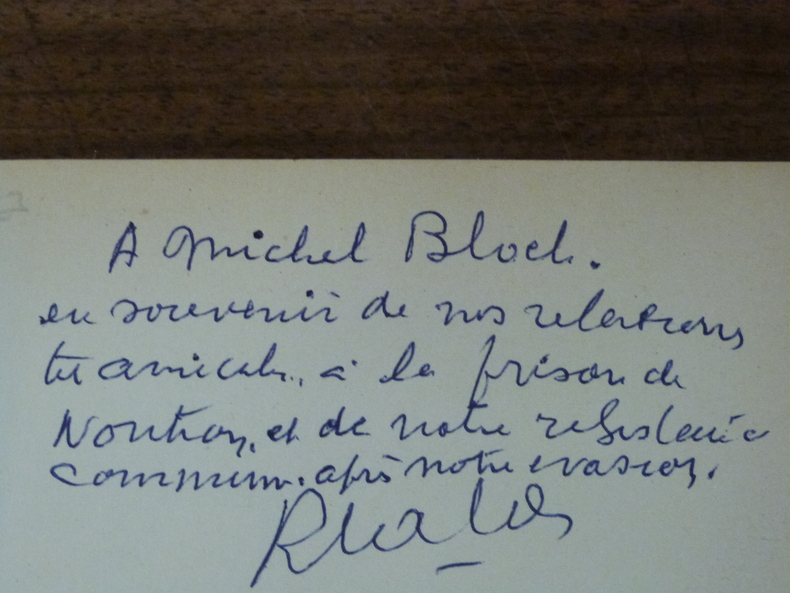 A Michel Bloch.
en souvenir de nos relations
très amicales, à la prison de
Nontron, et de notre résistance
commune. après notre évasion.